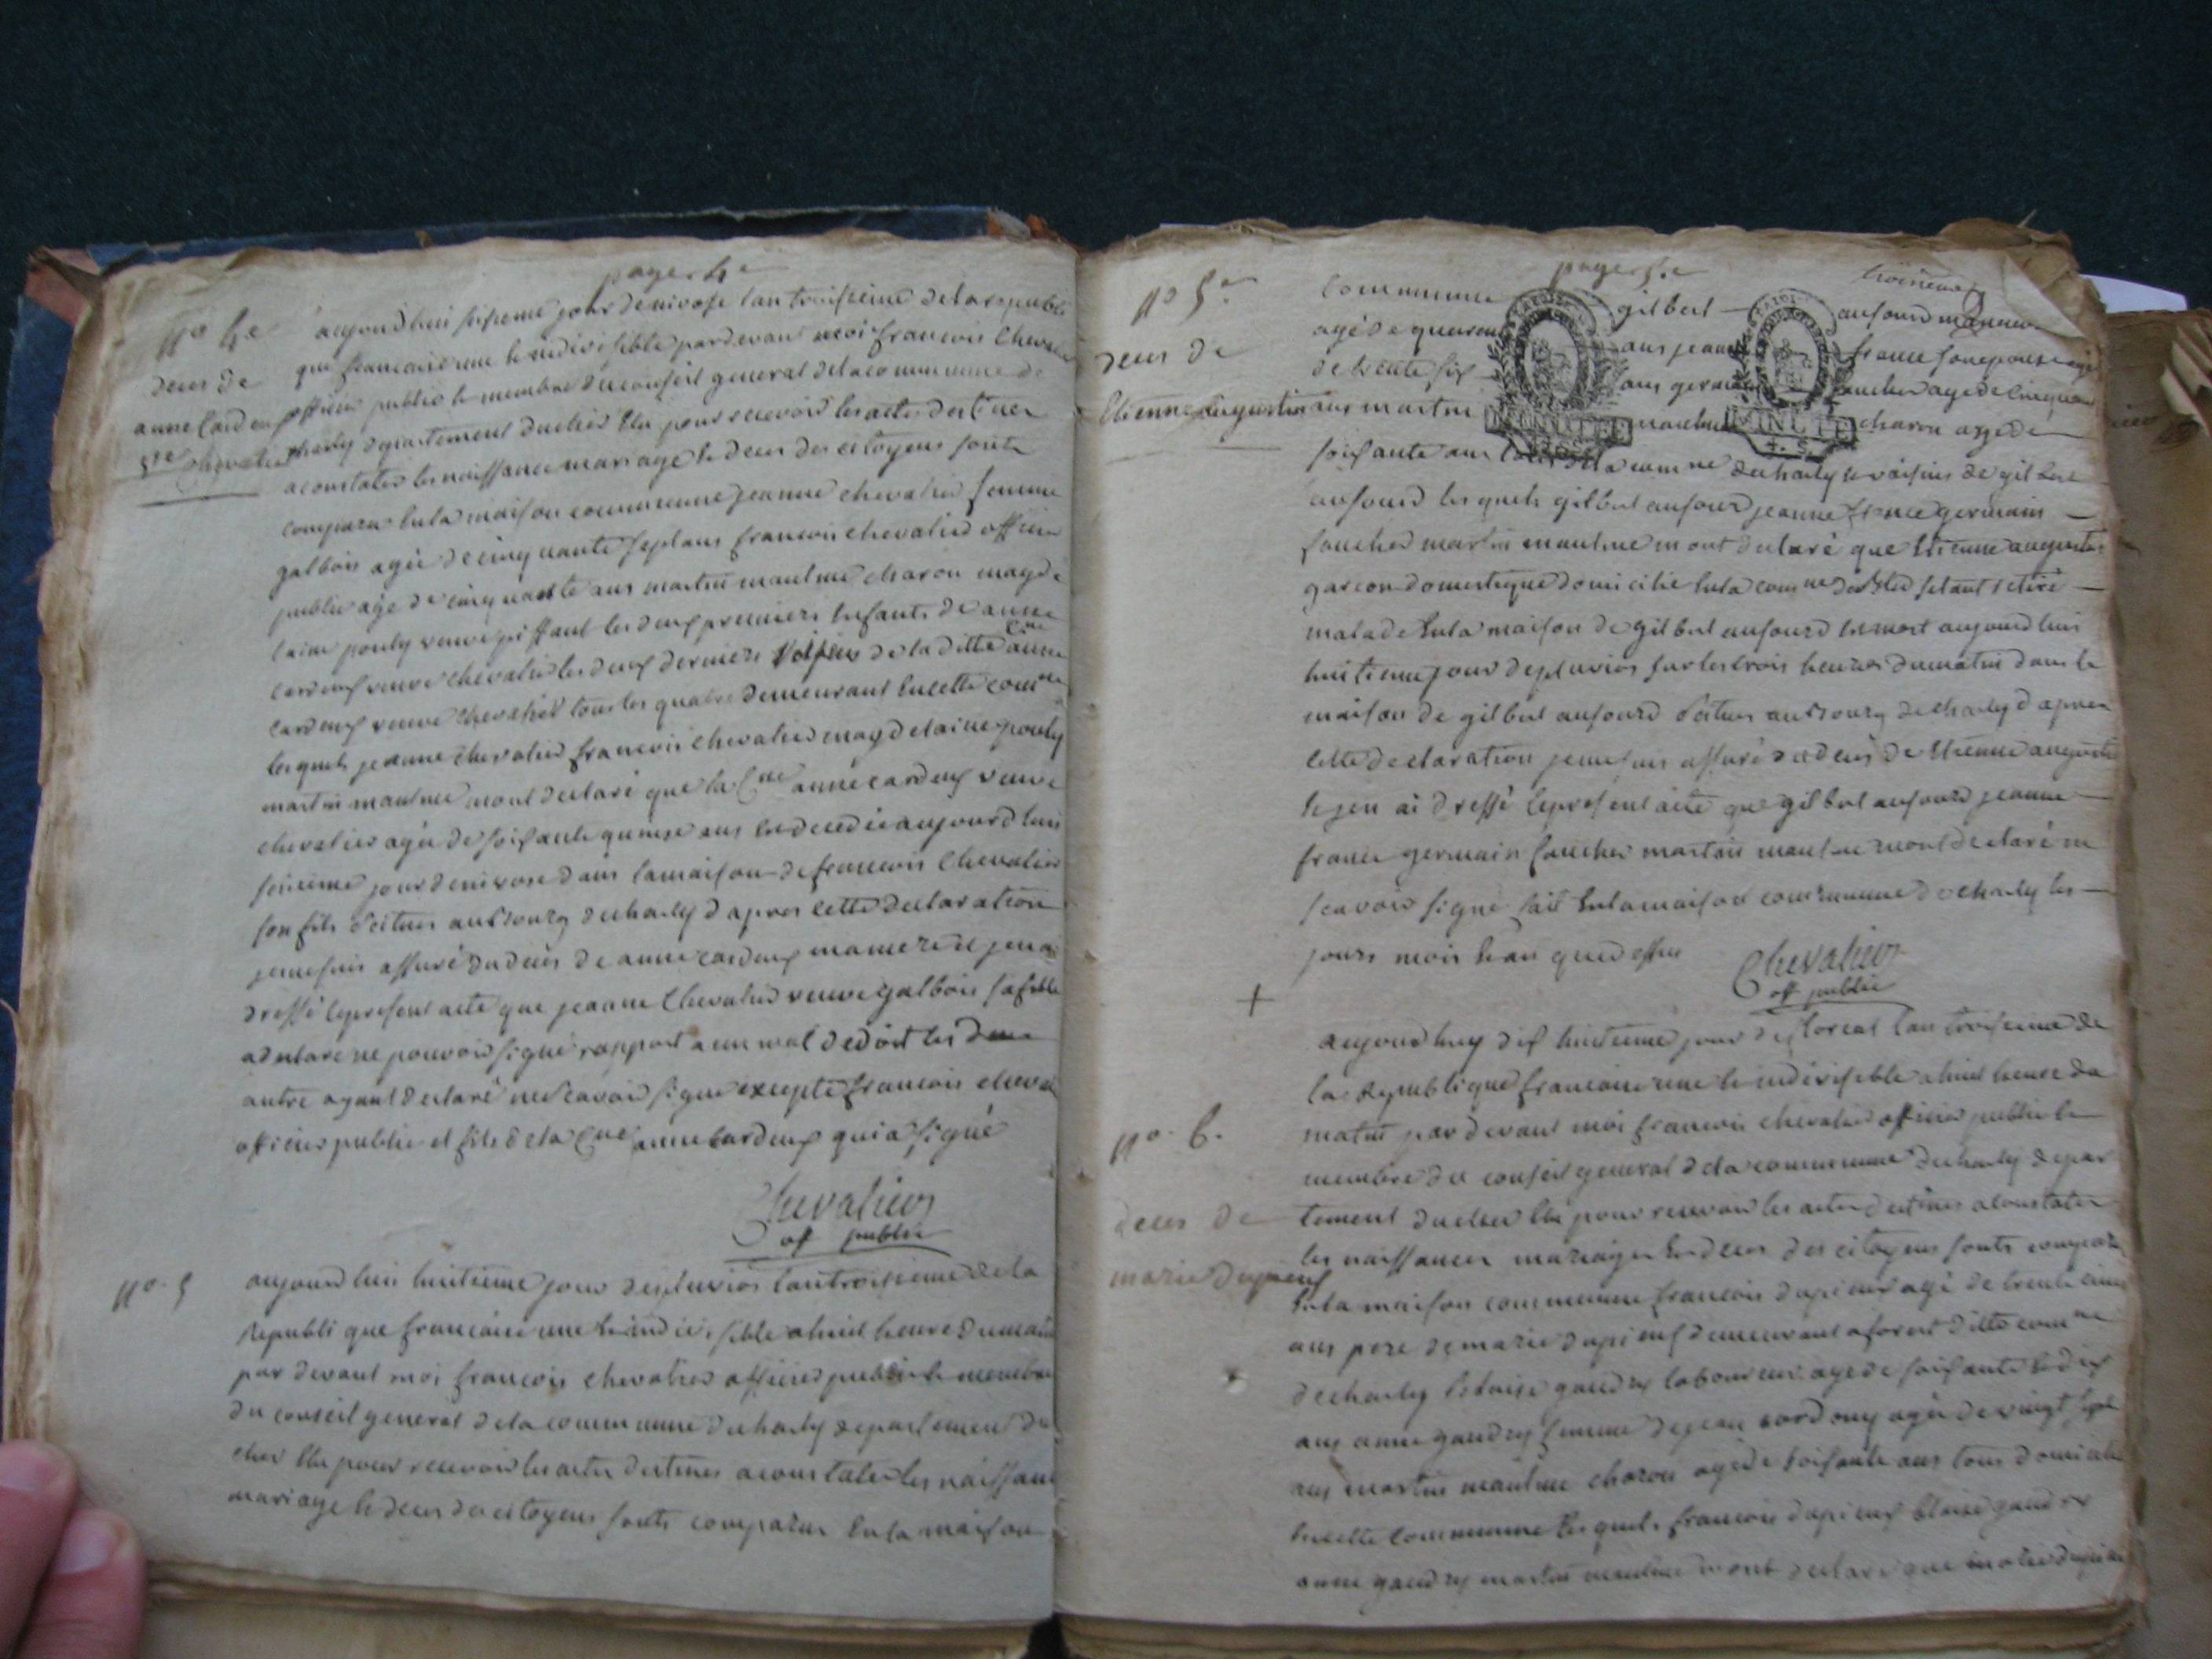 page 4e
No 4e
deces de
anne Cardeux
Ve chevalier
aujourd huy sixieme jour de nivose lan troisieme de la republi
que francaise une et indivisible pardevant moi francois Chevalier
officier public et membre du conseil general de la commune de
charly departement du cher elu pour recevoir les actes destines
a constater les naissance mariage et deces des citoyens sont
comparu en la maison commune jeanne chevalier femme
galbois agée de cinquante sept ans francois chevalier officier
public age de cinquante ans martin maulme charon magde
laine pouly veuve les deux premiers enfants de anne
cardeux veuve chevalier les deux derniers voisins de la ditte anne
cardeux veuve chevalier tous les quatre demeurant en cette comne
lesquels jeanne chevalier francois chevalier magdelaine pouly
martin maulme mont declaré que la Cne anne cardeux veuve
chevalier agée de soisante quinse ans est decedée aujourd huis
jour de nivose dans la maison de francois Chevalier
son fils scitues au bourg de charly d apres cette declaration
je me suis assuré du deces de anne cardeux ma mere et jen ai
dressé le present acte que jeanne Chevalier veuve galbois sa fille
a declare ne pouvoir signé rapport a un mal de doit les deux
autre ayant declaré ne scavoir signé excepté francois cheval
officier public et fils de la Cne anne cardeux qui a signé
Chevalier
off public
No 5
aujourd huis huitieme jour de pluvios lan troisieme de la
Republi que francaise une et indivisible a huit heure du matin
par devant moi francois chevalier officier public et membre
du conseil general de la commune de charly departement du
cher elu pour recevoir les actes destines a constater les naissance
mariage et deces des citoyens sonts comparus en la maison
page 5.e
troisieme
No 5e
deces de
Etienne augustin
Commune gilbert aufourd maneuvre
agé de quarente ans jeanne france son epouse agé
de trente six ans germain faucher age de cinquante
ans martin maulme charon agé de
soisante ans de la comne de charly et voisins de gilbert
aufourd les quels gilbert aufourd jeanne france germain
faucher martin maulme mont declaré que Etienne augustin
garcon domestique domicilié en la comne setant retiré
malade en la maison de gilbert aufourd est mort aujourd huis
huitieme jour de pluvios sur les trois heures du matin dans la
maison de gilbert aufourd scitues au bourg de charly d apres
cette declaration je me suis assuré du deces de Etienne augustin
et jen ai dressé le present acte que gilbert aufourd jeanne
france germain faucher martin maulme mont declaré ne
scavoir signé fait en la maison commune de charly les
jours mois et an que d essus
Chevalier
off public
+
No 6.
deces de
marie dupieux
aujourd huy dix huitieme jour de floreal lan troisieme de
la Republique francaise une et indivisible a huit heure du
matin par devant moi francois chevalier officier public et
membre du conseil general de la commune de charly depar
tement du cher elu pour recevoir les actes destines a constater
les naissances mariages et deces des citoyens sonts comparu
en la maison commune francois dupieux agé de trente cinq
ans pere de marie dupieux demeurant a foret ditte comne
de charly et blaise gaudry laboureur age de soisante et dix
ans anne gaudry femme de jean cordony agée de vingt sept
ans martin maulme charon age de soisante ans tous domicilie
en cette commune les quels francois dupieux blaise gaudry
anne gaudry martin maulme mont declare que marie dupieux